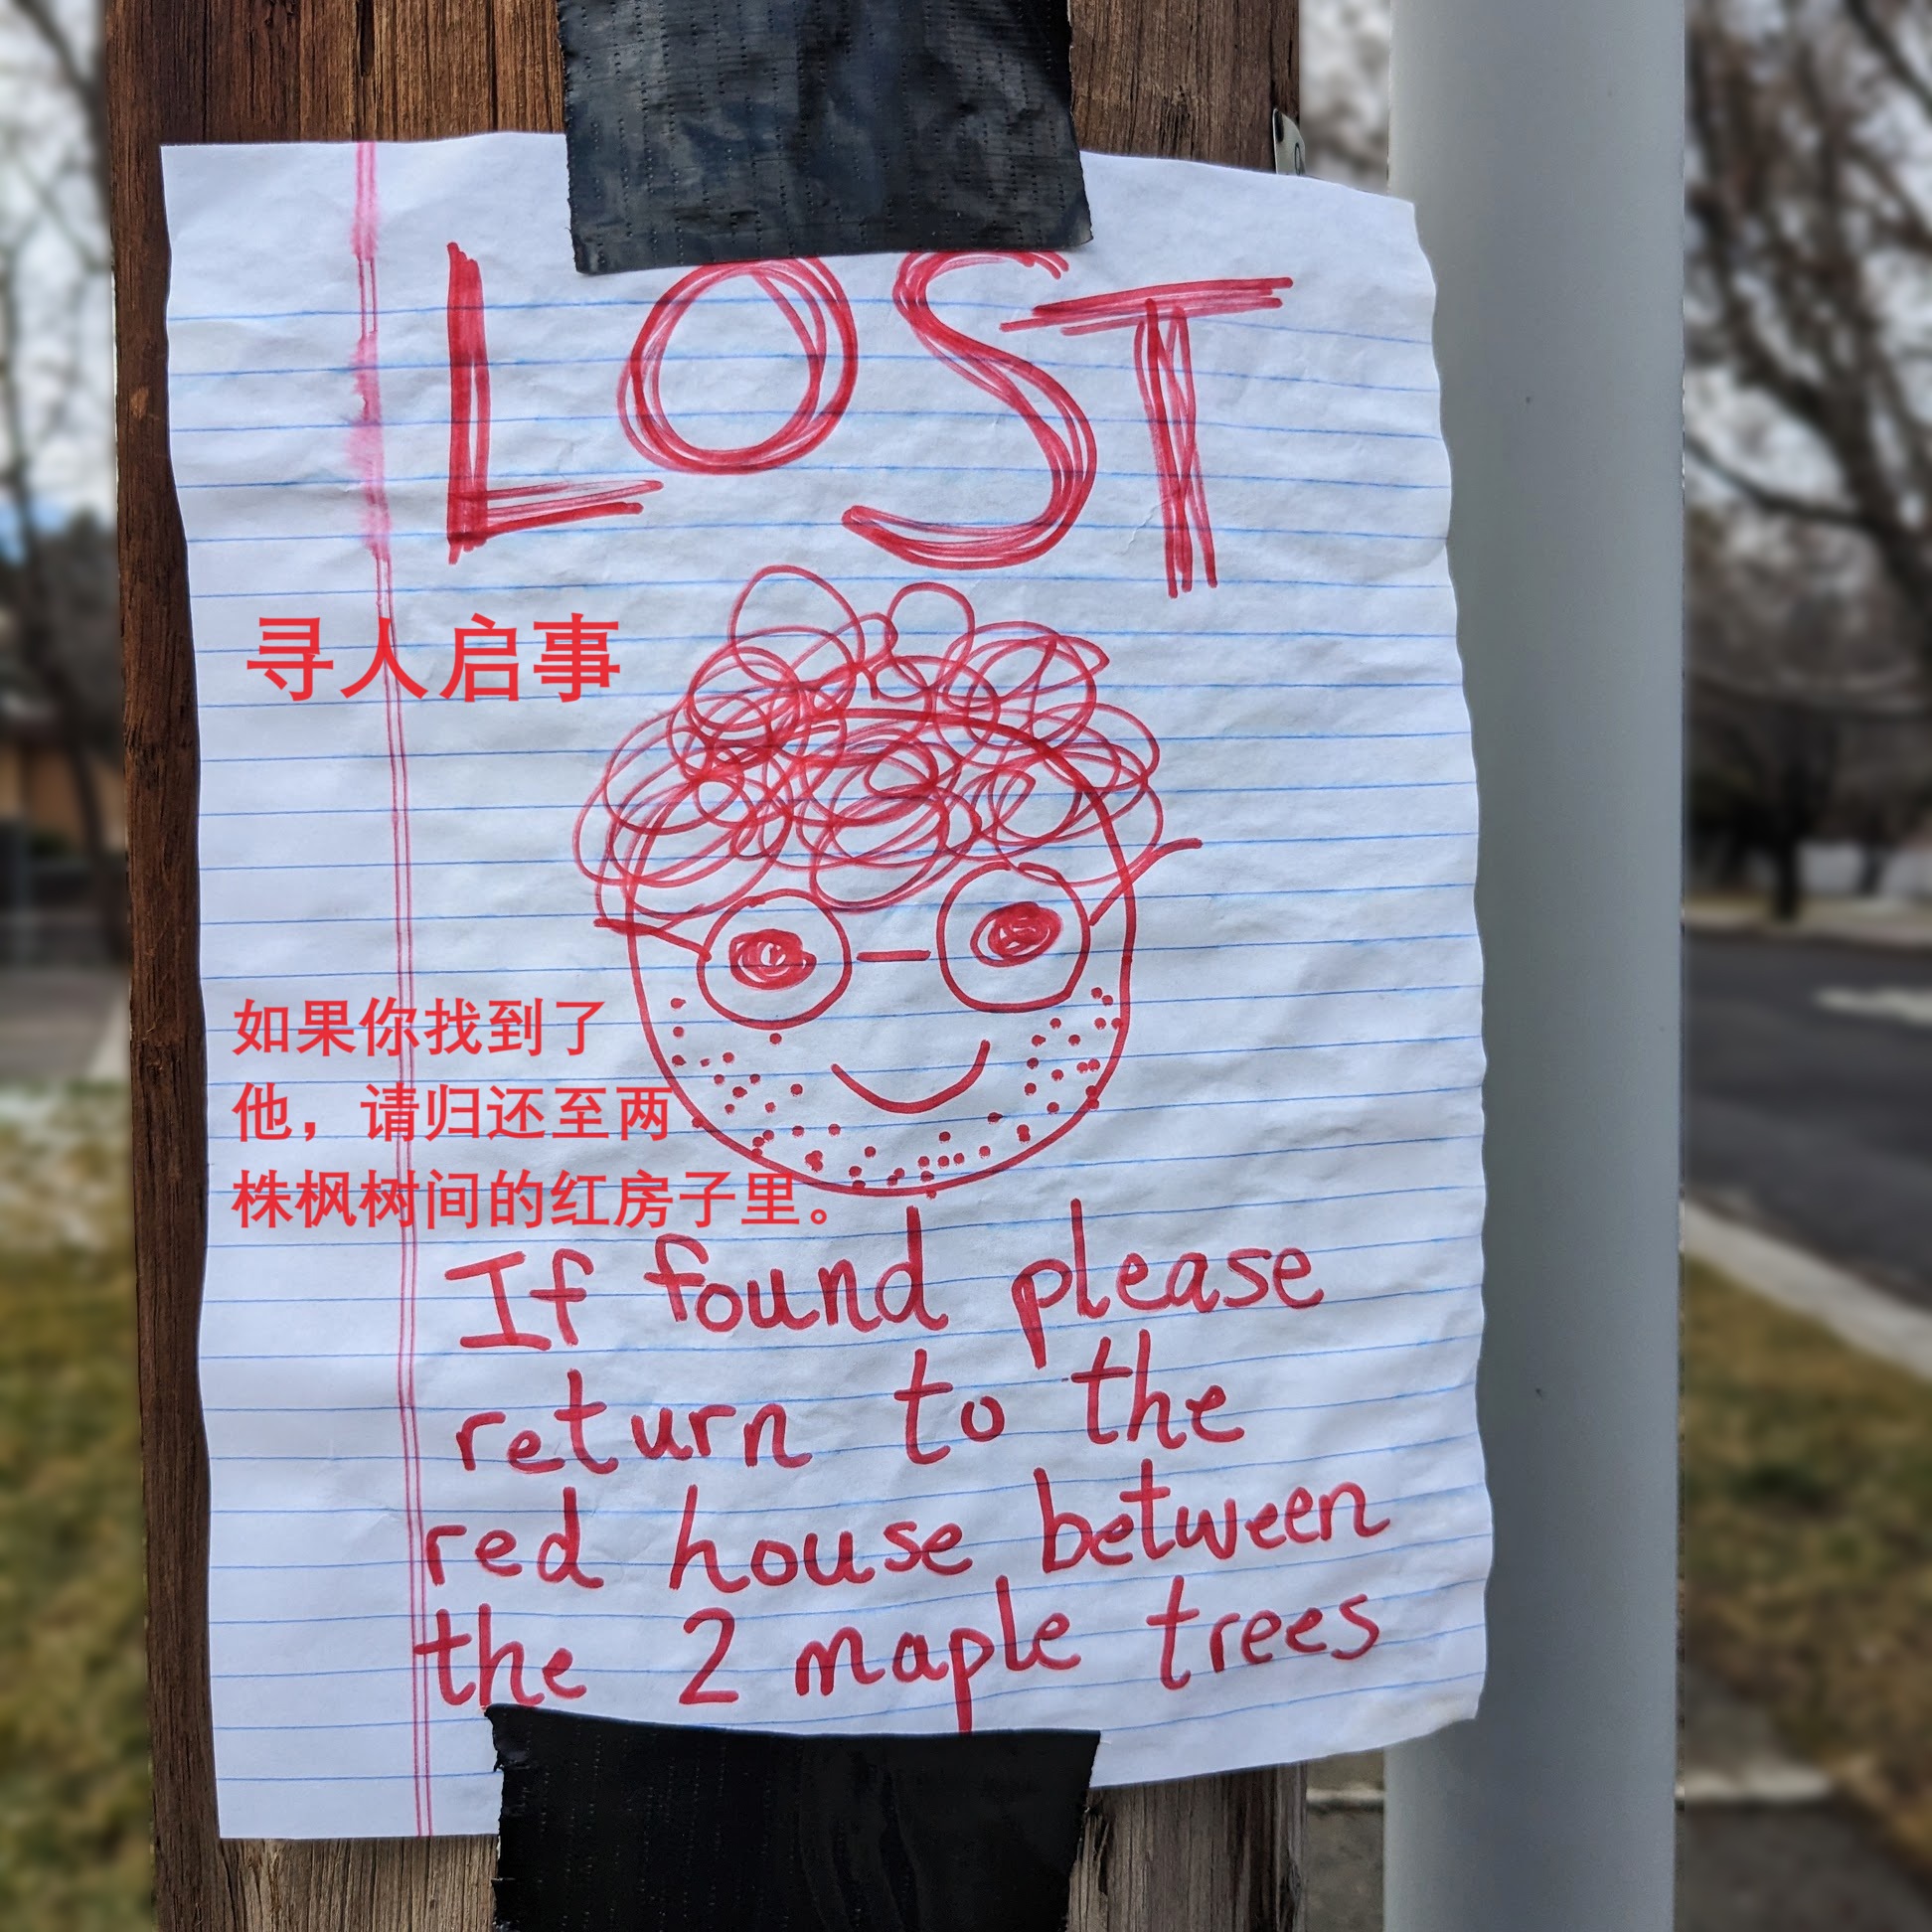 LOST
寻人启事
如果你找到了
他，请归还至两
株枫树间的红房子里。
If found please
return to the
red house between
the 2 maple trees